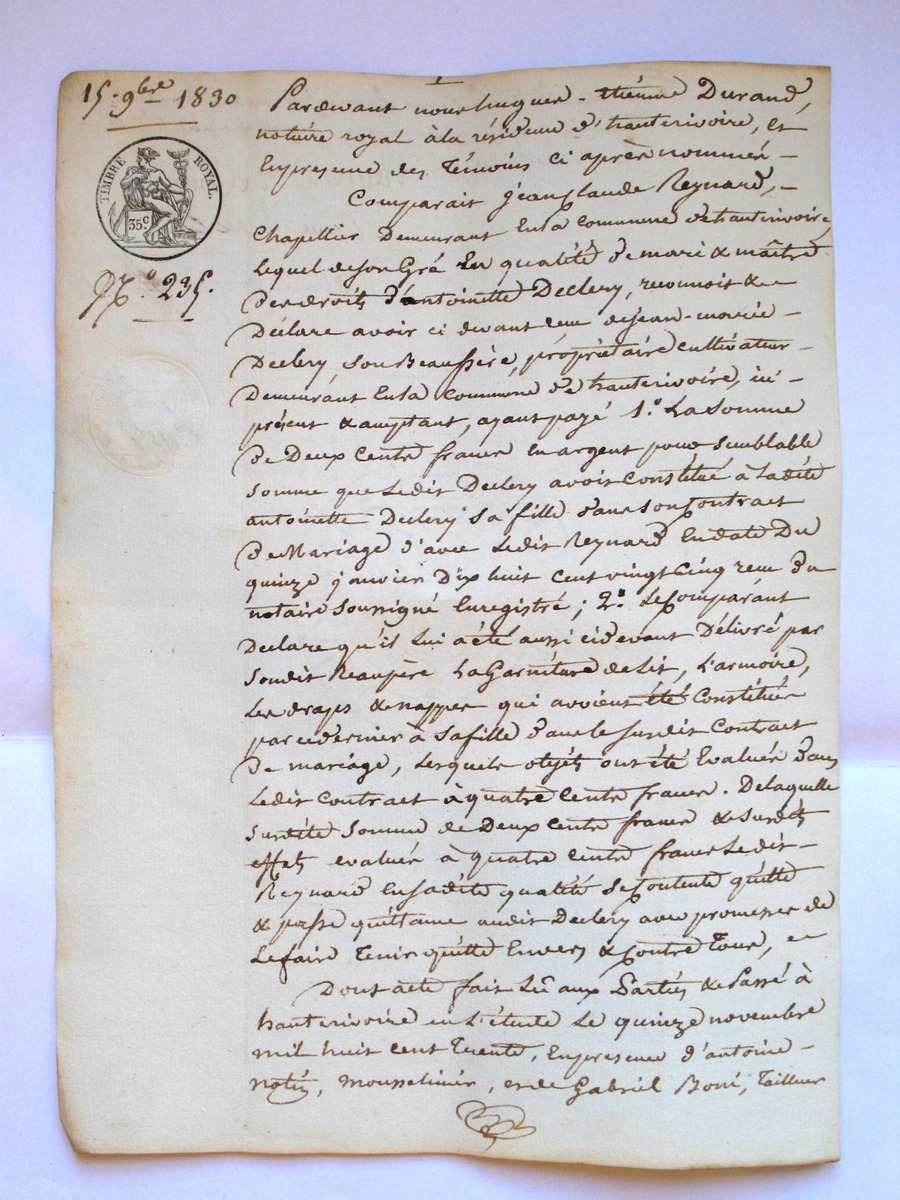 15. 9bre 1830
TIMBRE ROYAL.
35c
No. 235.
Pardevant nous hugues-étienne Durand,
notaire royal à la résidence d'hauterivoire, et
En presence des Témoins ci après nommés
Comparait jean Claude Reynard,
Chapellier Demeurant En la commune d'hauterivoire,
lequel de son Gré En qualité de mari & maître
Des droits d'antoinette Declery, reconnoit &
Déclare avoir ci devant reçu de jean-marie
Declery, son Beaupère, propriétaire cultivateur
Demeurant En la Commune d'hauterivoire, ici
présent & acceptant, ayant payé 1.o La Somme
De Deux Cents francs En argent pour semblable
Somme que Ledit Declery avoit Constitué à Ladite
antoinette Declery sa fille dans son Contract
De Mariage d'avec Ledit Reynard En date Du
quinze janvier Dix huit cent vingt Cinq reçu du
notaire Soussigné Enregistré ; 2.o Le Comparant
Declare qu'il Lui a été aussi cidevant Délivré par
Sondit Beaupère La Garniture de Lit, L'armoire,
Les draps & nappes qui avoient été Constitués
par ce dernier à Sa fille dans le susdit Contract
De mariage, Lesquels objets ont été Evalués dans
Ledit Contract à quatre Cents francs. De laquelle
Surdite Somme de Deux cents francs & surdits
effets evalués à quatre cents francs Ledit
Reynard En sadite qualité Se Contente quitte
& passe quittance audit Declery avec promesses de
Le faire Tenir quitte Envers & Contre Tous,
Dont acte fait Lû aux Parties & Passé à
hauterivoire en L'étude Le quinze novembre
mil huit cent Trente, En presence d'antoine
, Mousselinier, et de Gabriel Boni, Tailleur